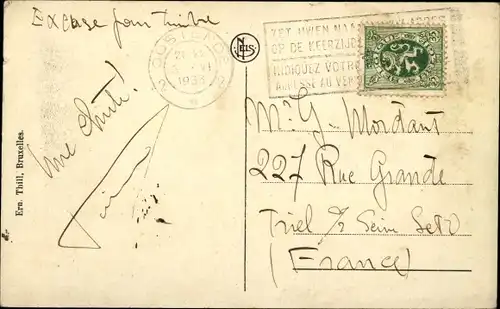 Excuse pour timbre
OOSTENDE
1933
NELS
ZET UWEN NAAM
OP DE KEERZIJDE
INDIQUEZ VOTRE
ADRESSE AU VERSO
Une Chute!
Ern. Thill, Bruxelles.
Mr G. Mordant
227 Rue Grande
Triel s/ Seine Set O
(France)